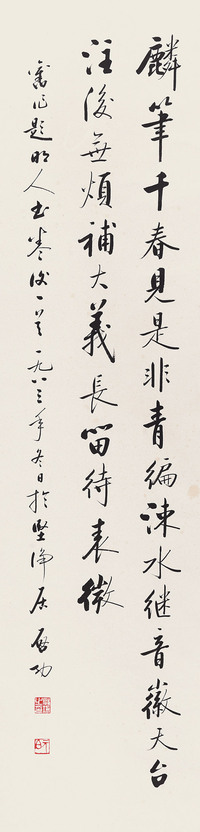 麟筆千春見是非青編涑水繼音徽天台
注後無煩補大義長留待表微
舊作題明人書卷後一首一九八三年冬日於堅淨居 啟功